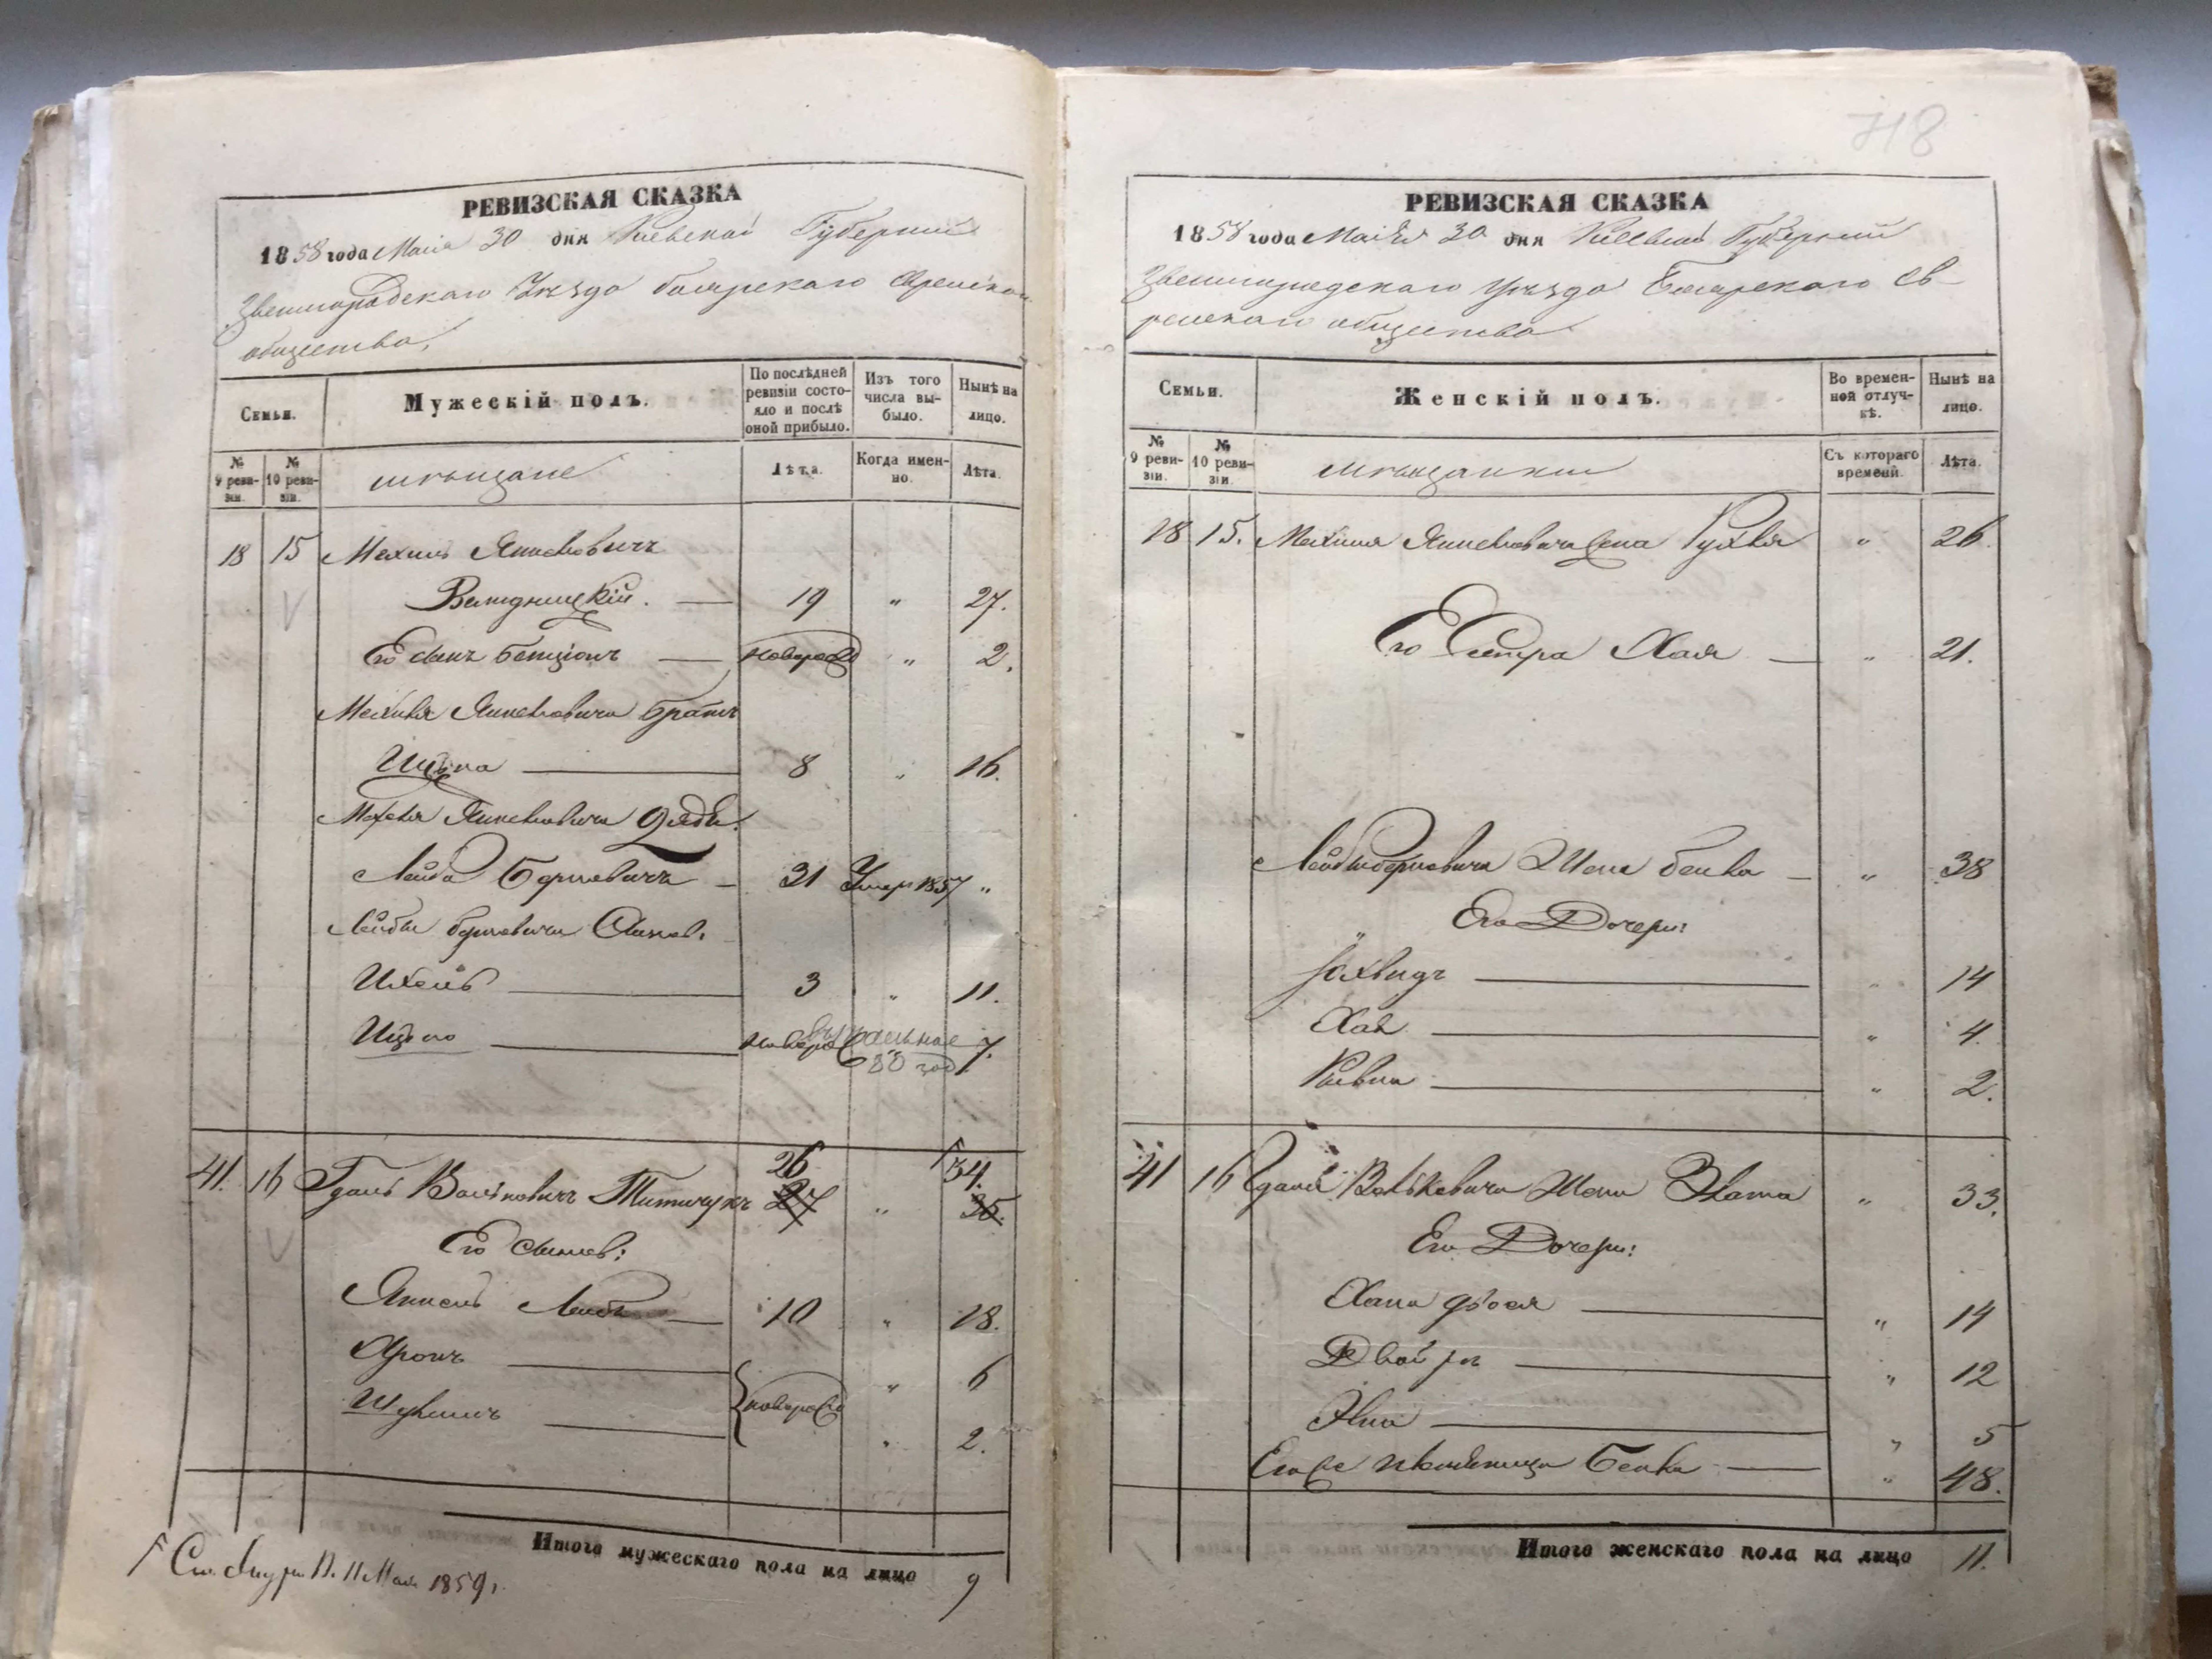 РЕВИЗСКАЯ СКАЗКА
1858 года Маія 30 дня Кіевской Губерніи
Звенигородскаго Уѣзда боярскаго Еврейскаго
общества,
Семьи.
Мужескій полъ.
По послѣдней ревизіи состояло и послѣ оной прибыло.
Изъ того числа выбыло.
Нынѣ на лицо.
№ 9 ревизіи.
№ 10 ревизіи.
мѣщане
Лѣта.
Когда именно.
Лѣта.
18 15 Мехиль Янкелевичъ
19 „ 27.
Его сынъ Бенціонъ — новорожд „ 2.
Мехиля Янкелевича братъ
8 „ 16.
Мехеля Янкелевича дядя.
Лейба Берковичъ — 31 Умеръ 1857 „
Лейбы берковича Сыновь:
Ихель — 3 „ 11.
новоро 7.
41. 16 Волькович Титичукъ 26 27 „ 34. 35.
Его сыновь:
Янкель Лейба — 10 „ 18.
Аронъ — новорожд „ 6
Шулимъ — „ 2.
Итого мужескаго пола на лицо 9
1859 г.
718
РЕВИЗСКАЯ СКАЗКА
1858 года Маія 30 дня Кіевской Губерніи
Звенигородскаго Уѣзда Боярскаго Ев-
рейскаго общества
Семьи.
Женскій полъ.
Во временной отлучкѣ.
Нынѣ на лицо.
№ 9 ревизіи.
№ 10 ревизіи.
мѣщанки
Съ котораго времени.
Лѣта.
18 15. Мехиля Янкелевича жена Рухля „ 26.
Его Сестра Хая — „ 21.
Лейбы берковича Жена бейла — „ 38
Его Дочери:
Іохвидъ — „ 14
Хая — „ 4.
Ривка — „ 2.
41 16 Волькович Жена Злата „ 33.
Его Дочери:
Хана — „ 14
Двойра — „ 12
„ 5
Его Бейла — „ 48.
Итого женскаго пола на лицо 11.